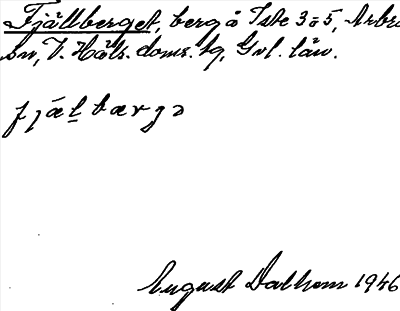 Fjällberget, berg å Iste 3 o 5, Arbrå
sn, V. Häls. doms. hg, Gvl. län.
fjælbærgə
August Dalhem 1946